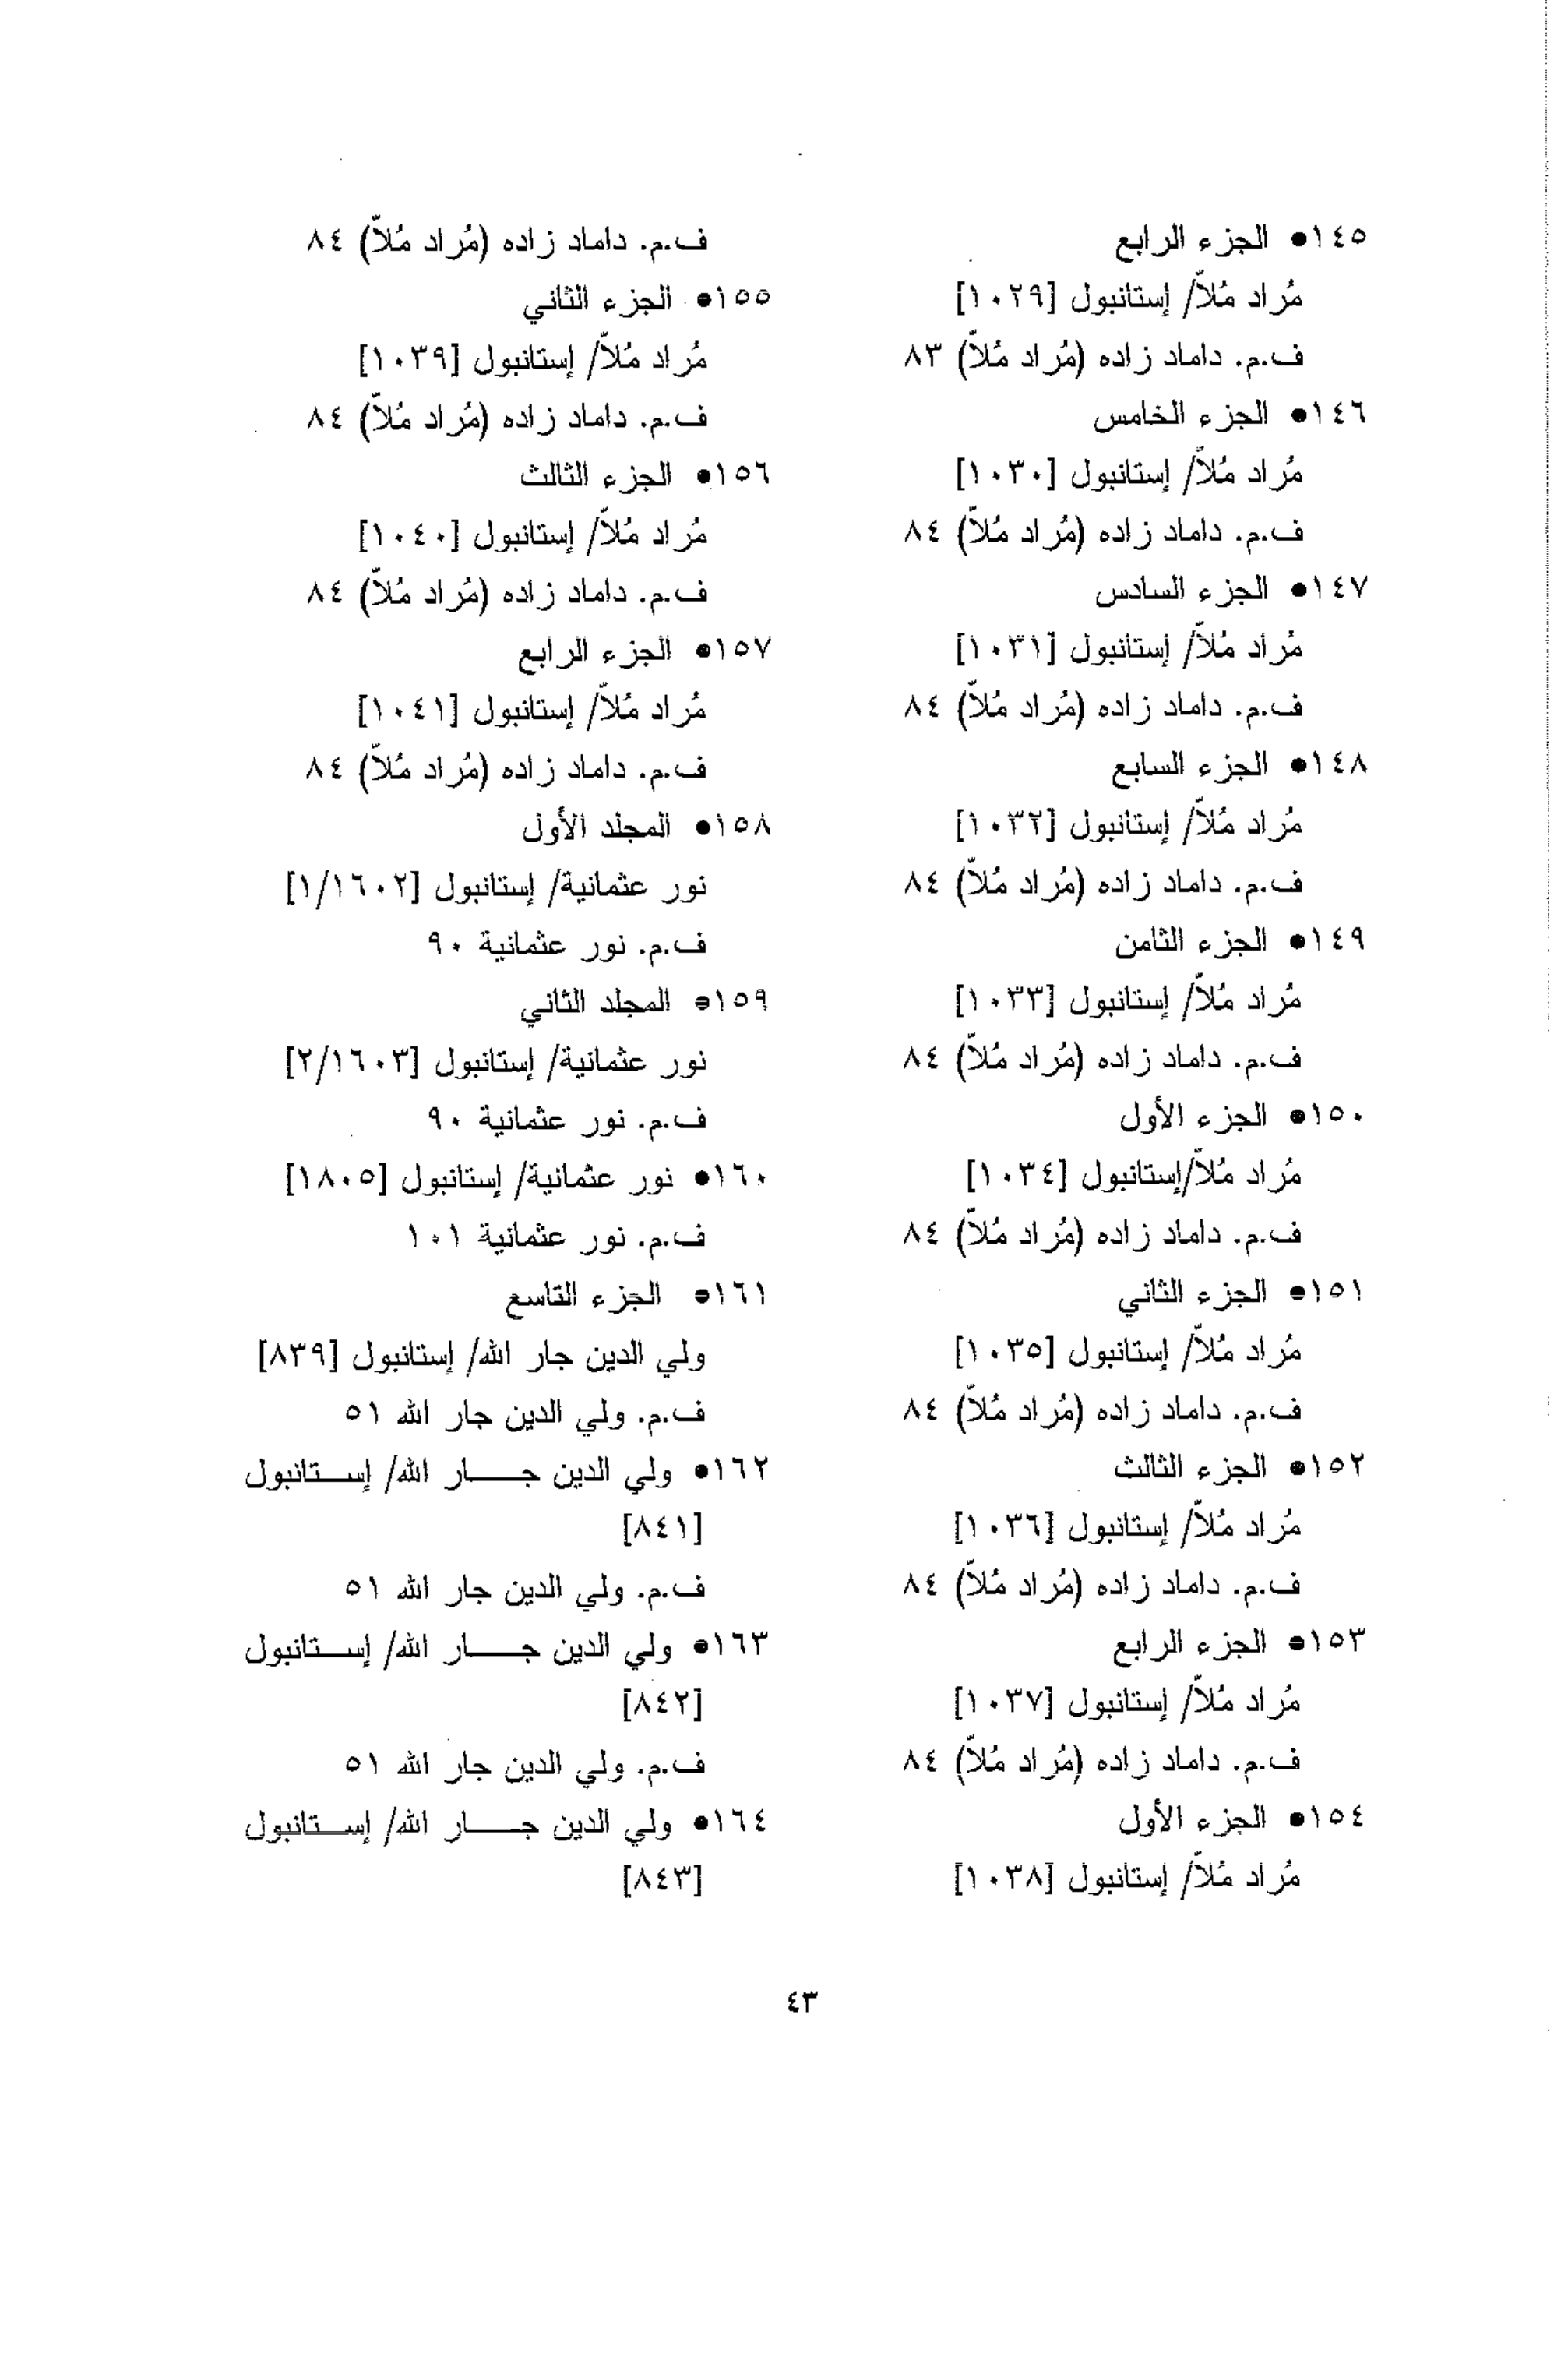 ١٤٥• الجزء الرابع
مُراد مُلاّ/ إستانبول [١٠٢٩]
ف.م. داماد زاده (مُراد مُلاّ) ٨٣
١٤٦• الجزء الخامس
مُراد مُلاّ/ إستانبول [١٠٣٠]
ف.م. داماد زاده (مُراد مُلاّ) ٨٤
١٤٧• الجزء السادس
مُراد مُلاّ/ إستانبول [١٠٣١]
ف.م. داماد زاده (مُراد مُلاّ) ٨٤
١٤٨• الجزء السابع
مُراد مُلاّ/ إستانبول [١٠٣٢]
ف.م. داماد زاده (مُراد مُلاّ) ٨٤
١٤٩• الجزء الثامن
مُراد مُلاّ/ إستانبول [١٠٣٣]
ف.م. داماد زاده (مُراد مُلاّ) ٨٤
١٥٠• الجزء الأول
مُراد مُلاّ/إستانبول [١٠٣٤]
ف.م. داماد زاده (مُراد مُلاّ) ٨٤
١٥١• الجزء الثاني
مُراد مُلاّ/ إستانبول [١٠٣٥]
ف.م. داماد زاده (مُراد مُلاّ) ٨٤
١٥٢• الجزء الثالث
مُراد مُلاّ/ إستانبول [١٠٣٦]
ف.م. داماد زاده (مُراد مُلاّ) ٨٤
١٥٣• الجزء الرابع
مُراد مُلاّ/ إستانبول [١٠٣٧]
ف.م. داماد زاده (مُراد مُلاّ) ٨٤
١٥٤• الجزء الأول
مُراد مُلاّ/ إستانبول [١٠٣٨]
ف.م. داماد زاده (مُراد مُلاّ) ٨٤
١٥٥• الجزء الثاني
مُراد مُلاّ/ إستانبول [١٠٣٩]
ف.م. داماد زاده (مُراد مُلاّ) ٨٤
١٥٦• الجزء الثالث
مُراد مُلاّ/ إستانبول [١٠٤٠]
ف.م. داماد زاده (مُراد مُلاّ) ٨٤
١٥٧• الجزء الرابع
مُراد مُلاّ/ إستانبول [١٠٤١]
ف.م. داماد زاده (مُراد مُلاّ) ٨٤
١٥٨• المجلد الأول
نور عثمانية/ إستانبول [١/١٦٠٢]
ف.م. نور عثمانية ٩٠
١٥٩• المجلد الثاني
نور عثمانية/ إستانبول [٢/١٦٠٣]
ف.م. نور عثمانية ٩٠
١٦٠• نور عثمانية/ إستانبول [١٨٠٥]
ف.م. نور عثمانية ١٠١
١٦١• الجزء التاسع
ولي الدين جار الله/ إستانبول [٨٣٩]
ف.م. ولي الدين جار الله ٥١
١٦٢• ولي الدين جـــار الله/ إســتانبول
[٨٤١]
ف.م. ولي الدين جار الله ٥١
١٦٣• ولي الدين جـــار الله/ إســتانبول
[٨٤٢]
ف.م. ولي الدين جار الله ٥١
١٦٤• ولي الدين جـــار الله/ إســتانبول
[٨٤٣]
٤٣